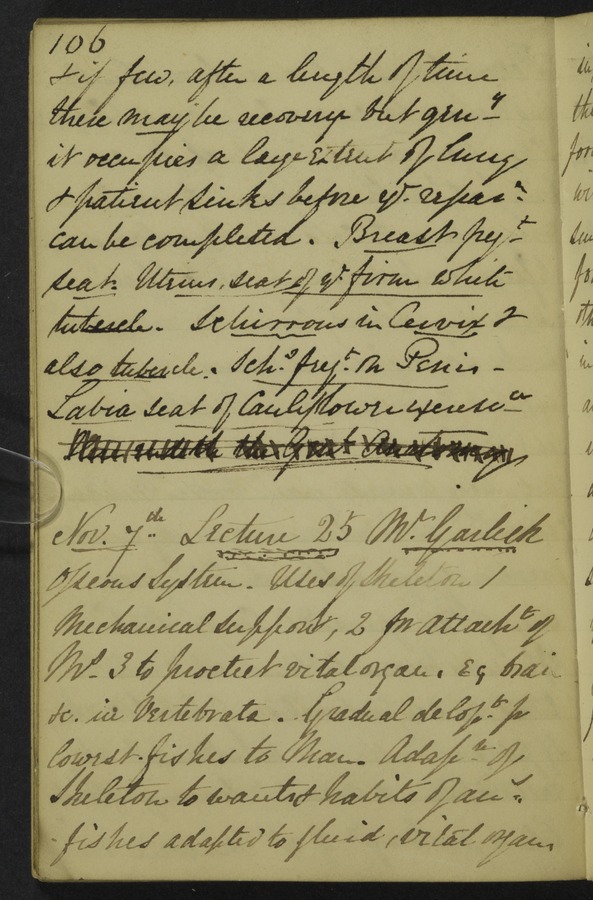 106
& if few, after a length of time
there may be recovery but gen^y
it occupies a large Extent of lung
& patient sinks before y^r repar^n
can be completed. Breast freq^t
seat. Uterus, seat of y^r firm white
tubercle. Schirrous in Cervix &
also tubercle. Sch^s freq^t on Penis -
Labia seat of Cauliflower excresc^ce
Nov. 7^th Lecture 25 M^r Garlick
Osseous System. Uses of Skeleton 1
Mechanical support, 2 for attach^t of
M^s 3 to protect vital organ. Eg brain
&c. in Vertebrata. Gradual delop^t fr
lowest fishes to Man. Adap^tn of
Skeleton to wants & habits of an^s.
fishes adapted to fluid, vital organs